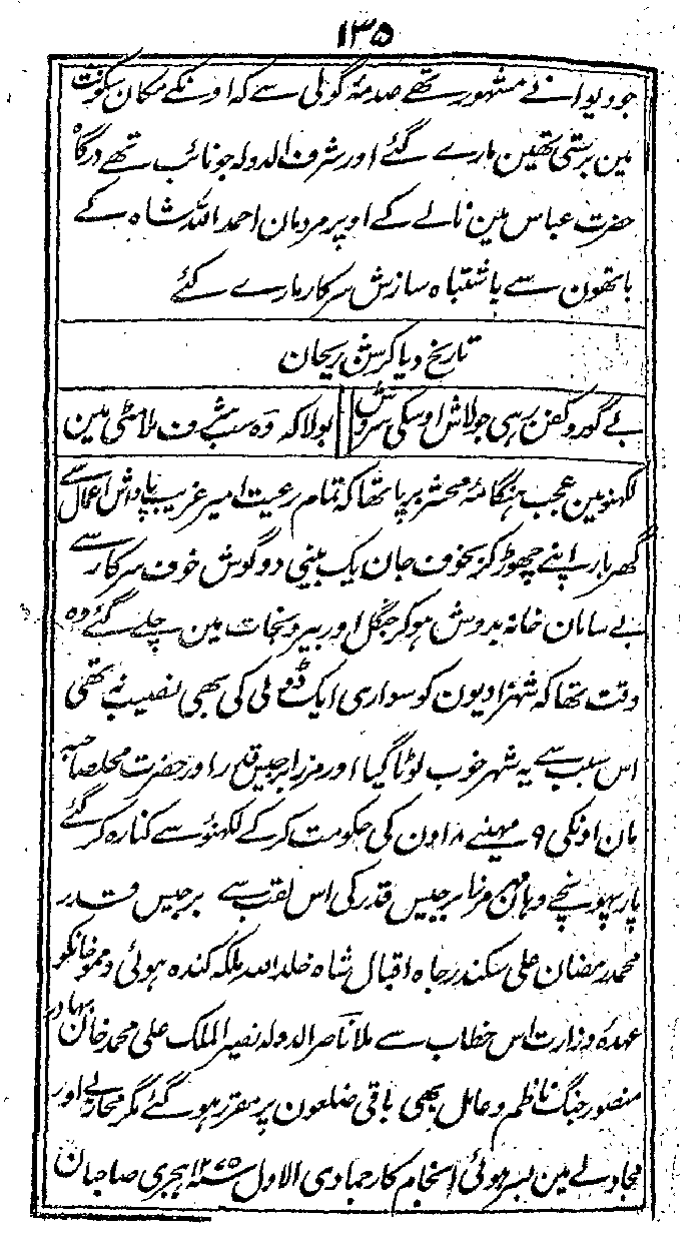 ۱۳۵
جو دیوانے مشہور تھے صدمۂ گولی سے کہ اونکے مکان سکونت
مین برستی تھین مارے گئے اور شرف الدولہ جو نائب تھے درگاہ
حضرت عباس مین نالے کے اوپر مردمان احمد اللہ شاہ کے
ہاتھون سے باشتباہ سازش سرکار مارے گئے
تاریخ دیاکرشن ریحان
بے گور و کفن رہی جو لاش اوسکی سروش
بولا کہ وہ سب شرف ملا مٹی مین
لکھنؤ مین عجب ہنگامۂ محشر برپا تھا کہ تمام رعیت امیر غریب پاداش اعمال سے
گھر بار اپنے چھوڑ کر بخوف جان یک بینی دو گوش خوف سرکار سے
بے سامان خانہ بدوش ہو کر جنگل اور بیرونجات مین چلے گئے وہ
وقت تھا کہ شہزادیون کو سواری ایک ڈولی کی بھی نصیب نہ تھی
اس سبب سے یہ شہر خوب لوٹا گیا اور مرزا برجیس قدر اور حضرت محل صاحبہ
مان اونکی ۹ مہینے ۸ ادن کی حکومت کرکے لکھنؤ سے کنارہ کر گئے
پار پہونچے وہان مہر مرزا برجیس قدر کی اس لقب سے برجیس قدر
محمد رمضان علی سکندر جاہ اقبال شاہ خلد اللہ ملکہ کندہ ہوئی و ممو خانکو
عہدہ وزارت اس خطاب سے ملا ناصر الدولہ نصیر الملک علی محمد خان بہادر
منصور جنگ ناظم و عامل بھی باقی ضلعون پر مقرر ہو گئے مگر محاربے اور
مجادلے مین بسر ہوئی انجام کار جمادی الاول سنہ ۱۲۷۵ ہجری صاحبان